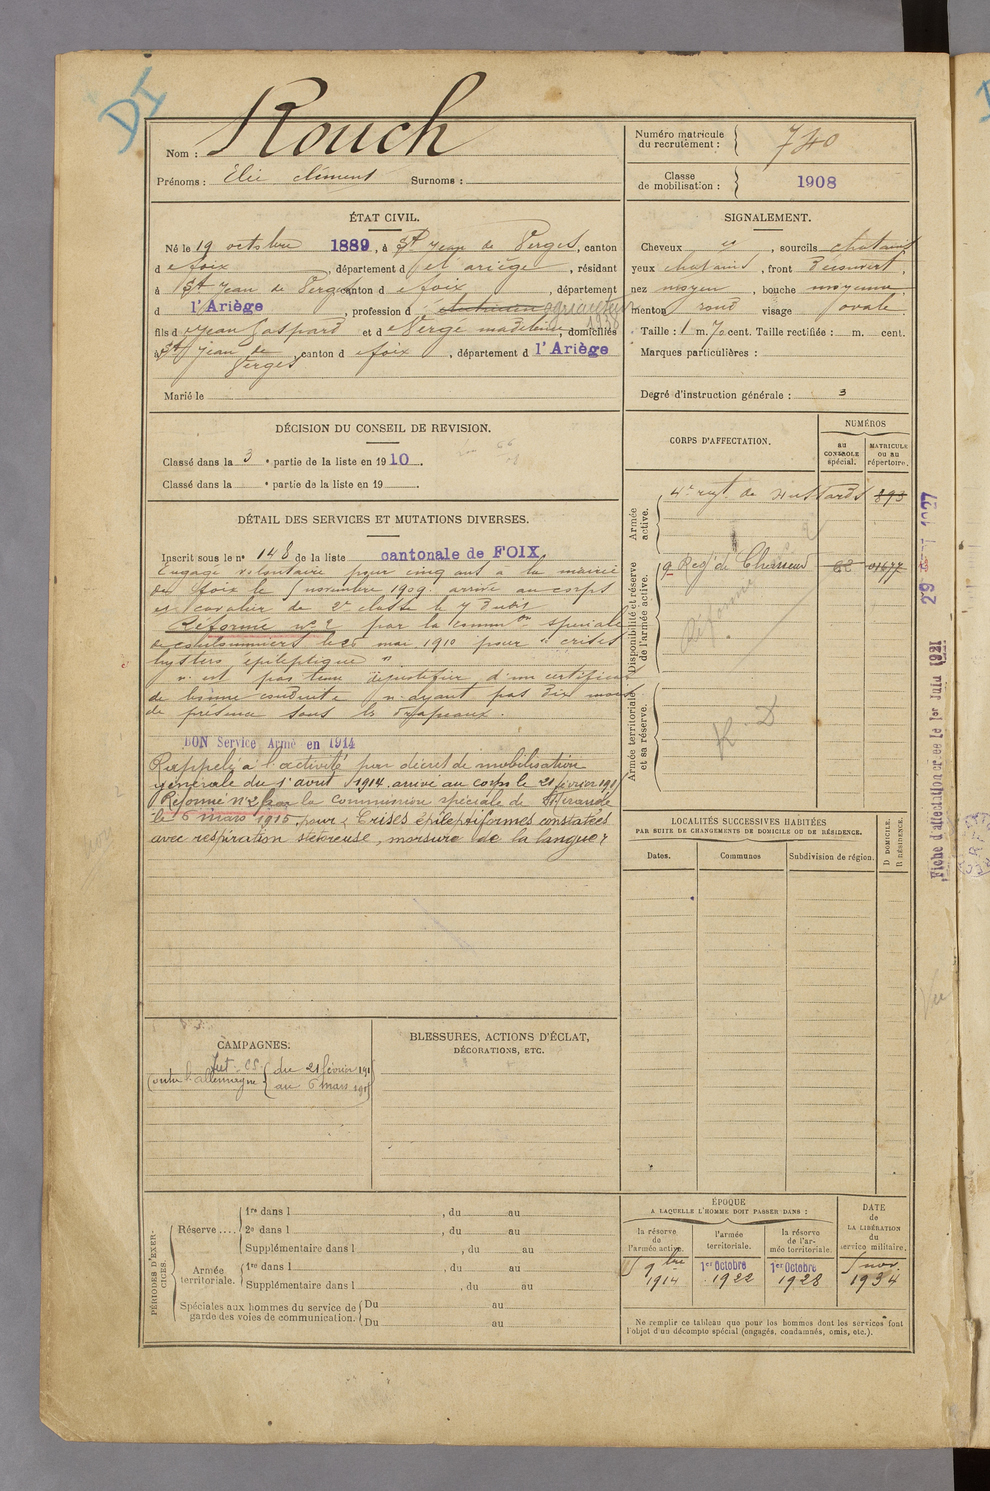 DI
Nom : Rouch
Prénoms : Elie clément Surnoms :
Numéro matricule du recrutement : 740
Classe de mobilisation : 1908
ÉTAT CIVIL.
Né le 19 octobre 1889, à St Jean de Verges, canton
de foix, département d el ariège, résidant
à St Jean de Verges canton de foix, département
d l'Ariège, profession d agriculteur
fils de Jean Gaspard et de Verge madeleine, domiciliés
à St Jean de Verges, canton de foix, département d l'Ariège
Marié le
SIGNALEMENT.
Cheveux, sourcils chatains
yeux chatains, front découvert,
nez moyen, bouche moyenne,
menton rond visage ovale.
Taille : 1 m. 70 cent. Taille rectifiée : m. cent.
Marques particulières :
Degré d'instruction générale : 3
DÉCISION DU CONSEIL DE REVISION.
Classé dans la 3e partie de la liste en 1910.
Classé dans la e partie de la liste en 19
DÉTAIL DES SERVICES ET MUTATIONS DIVERSES.
Inscrit sous le no 148 de la liste cantonale de FOIX.
Engagé volontaire pour cinq ans à la mairie
de foix le novembre 1909. arrivé au corps
et cavalier de 2e classe le 7 dudit
Réformé no 2 par la common spéciale
de coulommiers le 26 mai 1910 pour "crises
hystero épileptique"
n'est pas tenu de justifier d'un certificat
de bonne conduite n'ayant pas dix mois
de présence sous les drapeaux.
BON Service Armé en 1914
Rappelé à l'activité par décret de mobilisation
générale du 1er août 1914. arrivé au corps le 21 février 1915
Réformé no 2 par la commission spéciale de
le 6 mars 1915 pour "Crises épileptiformes constatées
avec respiration stertoreuse, morsure de la langue"
CORPS D'AFFECTATION.
NUMÉROS
au CONTROLE spécial.
MATRICULE ou au répertoire.
Armée active.
4e regt de Hussards 893
Disponibilité et réserve de l'armée active.
9 Regt de Chasseurs 01677
réformé
Armée territoriale et sa réserve.
R. D
29 1927
Fiche d'affectation créée le 1er Juin 1921
LOCALITÉS SUCCESSIVES HABITÉES
PAR SUITE DE CHANGEMENTS DE DOMICILE OU DE RÉSIDENCE.
Dates. Communes Subdivision de région.
D DOMICILE.
R RÉSIDENCE.
CAMPAGNES.
Contre l'allemagne du 21 février 1915
au 6 mars 1915
BLESSURES, ACTIONS D'ÉCLAT,
DÉCORATIONS, ETC.
PÉRIODES D'EXERCICES.
Réserve .... 1re dans l , du au
2e dans l , du au
Supplémentaire dans l , du au
Armée territoriale. 1re dans l , du au
Supplémentaire dans l , du au
Spéciales aux hommes du service de garde des voies de communication. Du au
Du au
ÉPOQUE
A LAQUELLE L'HOMME DOIT PASSER DANS :
la réserve de l'armée active.
l'armée territoriale.
la réserve de l'armée territoriale.
DATE de LA LIBÉRATION du service militaire.
5 9bre 1914
1er Octobre 1922
1er Octobre 1928
5 nov. 1934
Ne remplir ce tableau que pour les hommes dont les services font
l'objet d'un décompte spécial (engagés, condamnés, omis, etc.).